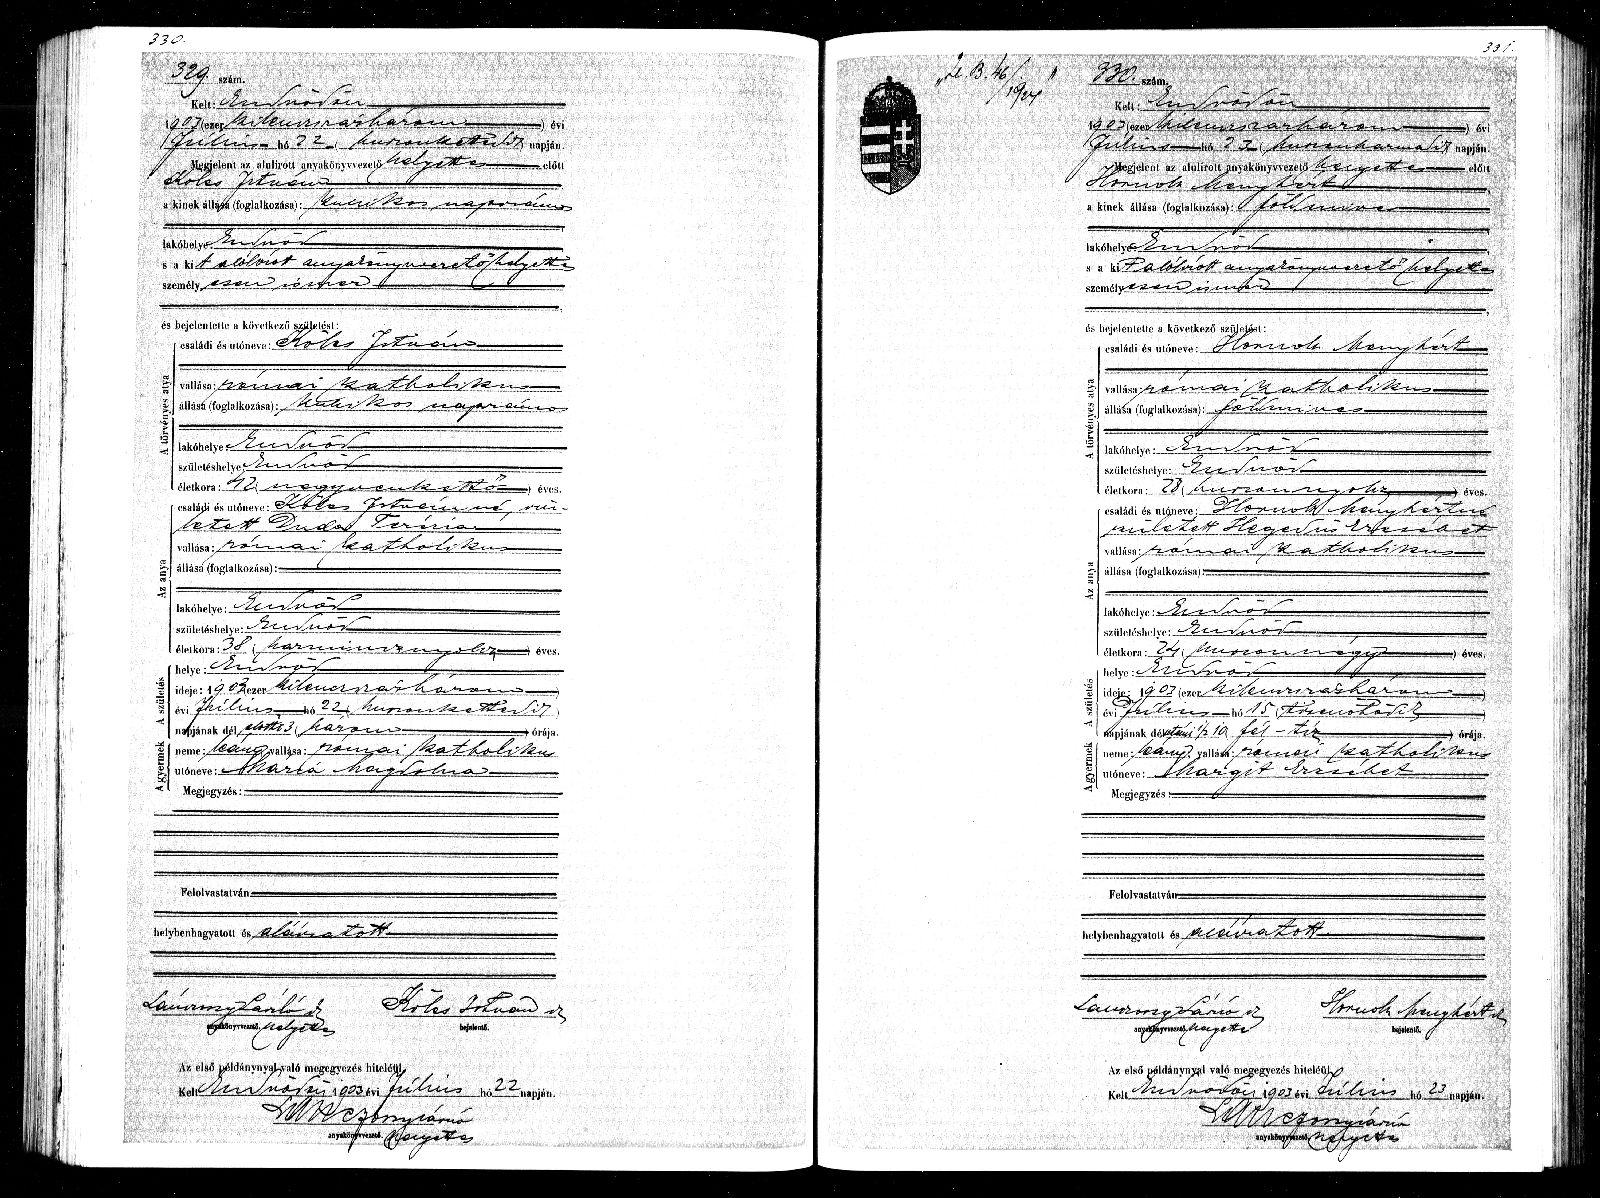 330.
329. szám.
Kelt: Endrődön
1903 (ezer kilenczszázhárom) évi
Július hó 22 (huszonkettedik) napján.
Megjelent az alulirott anyakönyvvezető helyettes előtt
Kólcs István
a kinek állása (foglalkozása): kubikos napszámos
lakóhelye Endrőd
s a kit alólírott anyakönyvvezető helyettes
személyesen ismer
és bejelentette a következő születést:
A törvényes atya
családi és utóneve: Kólcs István
vallása: római katholikus
állása (foglalkozása): kubikos napszámos
lakóhelye: Endrőd
születéshelye: Endrőd
életkora: 42 (negyvenkettő) éves.
Az anya
családi és utóneve: Kólcs Istvánné, szü-
letett Duda Terézia
vallása: római katholikus
állása (foglalkozása):
lakóhelye: Endrőd
születéshelye: Endrőd
életkora: 38 (harmincznyolcz) éves.
A születés
helye: Endrőd
ideje: 1903 (ezer kilenczszázhárom)
évi Július hó 22 (huszonkettedik)
napjának dél előtti 3 (három) órája.
A gyermek
neme: leány, vallása: római katholikus
utóneve: Mária Magdolna
Megjegyzés:
Felolvastatván
helybenhagyatott és aláíratott
Kólcs István
anyakönyvvezető helyettes bejelentő.
Az első példánynyal való megegyezés hiteléül.
Kelt Endrődön 1903 évi Július hó 22 napján.
anyakönyvvezető helyettes
331.
330. szám.
Kelt: Endrődön
1903 (ezer kilenczszázhárom) évi
Július hó 23 (huszonharmadik) napján.
Megjelent az alulirott anyakönyvvezető helyettes előtt
Hornok Menyhért
a kinek állása (foglalkozása): földmives
lakóhelye Endrőd
s a kit alólírott anyakönyvvezető helyettes
személyesen ismer
és bejelentette a következő születést:
A törvényes atya
családi és utóneve: Hornok Menyhért
vallása: római katholikus
állása (foglalkozása): földmives
lakóhelye: Endrőd
születéshelye: Endrőd
életkora: 28 (huszonnyolcz) éves.
Az anya
családi és utóneve: Hornok Menyhértné
született Hegedűs Erzsébet
vallása: római katholikus
állása (foglalkozása):
lakóhelye: Endrőd
születéshelye: Endrőd
életkora: 24 (huszonnégy) éves.
A születés
helye: Endrőd
ideje: 1903 (ezer kilenczszázhárom)
évi Július hó 15 (tizenötödik)
napjának dél előtti 1/2 10 fél-tíz órája.
A gyermek
neme: leány, vallása: római katholikus
utóneve: Margit Erzsébet
Megjegyzés:
Felolvastatván
helybenhagyatott és aláíratott
Hornok Menyhért
anyakönyvvezető helyettes bejelentő.
Az első példánynyal való megegyezés hiteléül.
Kelt Endrődön 1903 évi Július hó 23 napján.
anyakönyvvezető helyettes